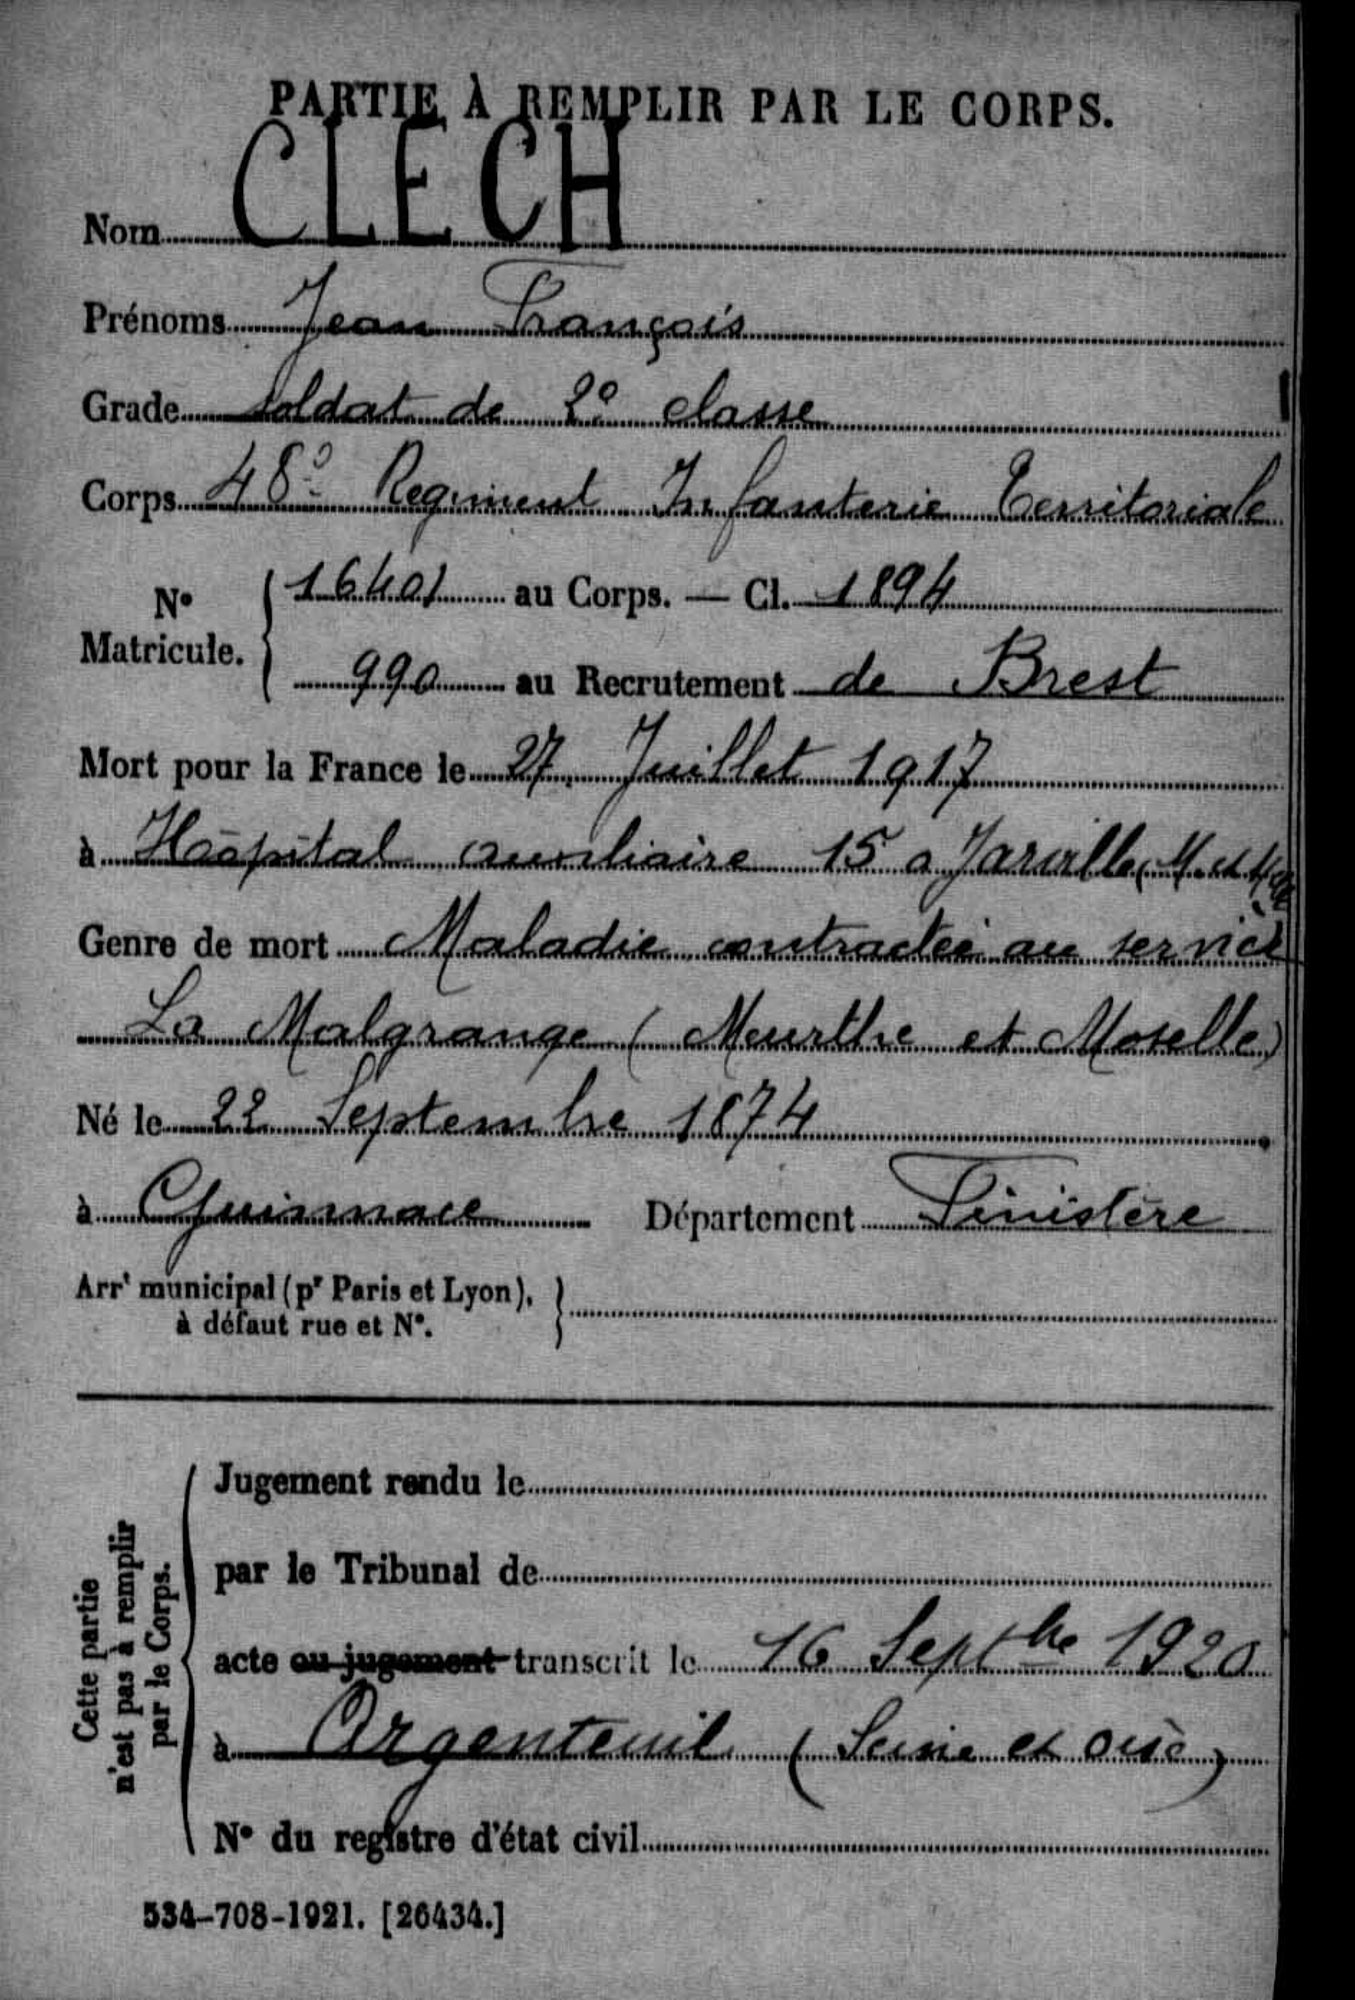 PARTIE À REMPLIR PAR LE CORPS.
Nom CLECH
Prénoms Jean François
Grade soldat de 2e classe
Corps 48e Regiment Infanterie Territoriale
N° Matricule. 16401 au Corps. — Cl. 1894
990 au Recrutement de Brest
Mort pour la France le 27 Juillet 1917
à Hôpital auxiliaire 15 a Jarville (M. et Mlle)
Genre de mort Maladie contractée au service
La Malgrange (Meurthe et Moselle)
Né le 22 Septembre 1874
à Guimaec Département Finistère
Arrt municipal (pr Paris et Lyon), à défaut rue et N°.
Cette partie n'est pas à remplir par le Corps.
Jugement rendu le
par le Tribunal de
acte ou jugement transcrit le 16 Septbre 1920
à Argenteuil (Seine et oise)
N° du registre d'état civil
534-708-1921. [26434.]